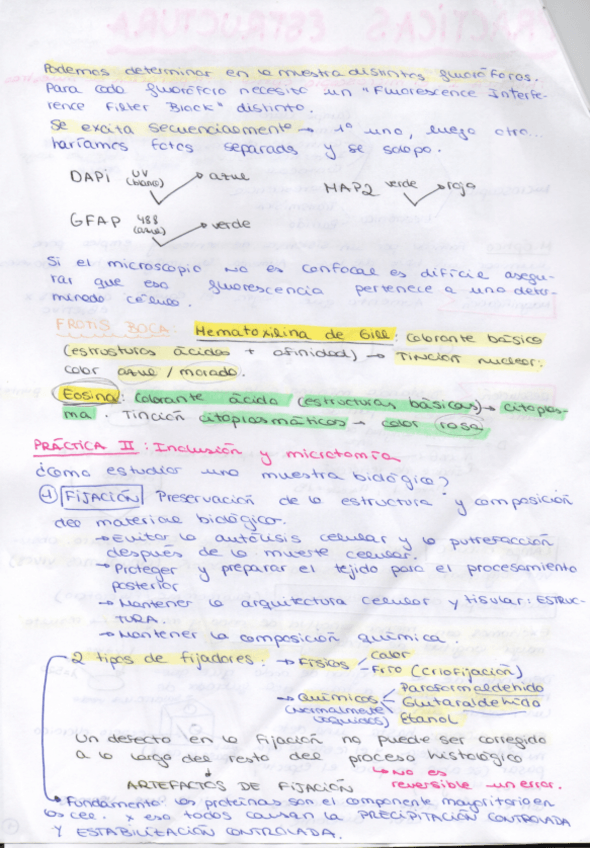 Podemos determinar en la muestra distintos fluoróforos.
Para cada fluoróforo necesito un "Fluorescence Interfe-
rence Filter Block" distinto.
Se excita secuencialmente → 1º uno, luego otro...
haríamos fotos separadas y se solapa.
DAPi UV (blanco) → azul
MAP2 verde → rojo
GFAP 488 (azul) → verde
Si el microscopio no es confocal es difícil asegu-
rar que esa fluorescencia pertenece a una deter-
minada célula.
FROTIS BOCA: Hematoxilina de Gill: Colorante básico
(estructuras ácidas + afinidad) → Tinción nuclear:
color azul / morado.
Eosina: Colorante ácido (estructuras básicas) → citoplas-
ma. Tinción citoplasmáticos → color rosa
PRÁCTICA II: Inclusión y microtomía
¿Como estudiar una muestra biológica?
1 FIJACIÓN Preservación de la estructura y composición
del material biológico.
→ Evitar la autólisis celular y la putrefacción
después de la muerte celular.
→ Proteger y preparar el tejido para el procesamiento
posterior
→ Mantener la arquitectura celular y tisular: ESTRUC-
TURA.
→ Mantener la composición química.
2 tipos de fijadores: → Físicos Calor
Frío (Criofijación)
→ Químicos Paraformaldehido
(normalmente líquidos) Glutaraldehido
Etanol
Un defecto en la fijación no puede ser corregido
a lo largo del resto del proceso histológico
↳ No es
ARTEFACTOS DE FIJACIÓN reversible un error.
→ Fundamento: los proteínas son el componente mayoritario en
los cel. x eso todos causan la PRECIPITACIÓN CONTROLADA
Y ESTABILIZACIÓN CONTROLADA.